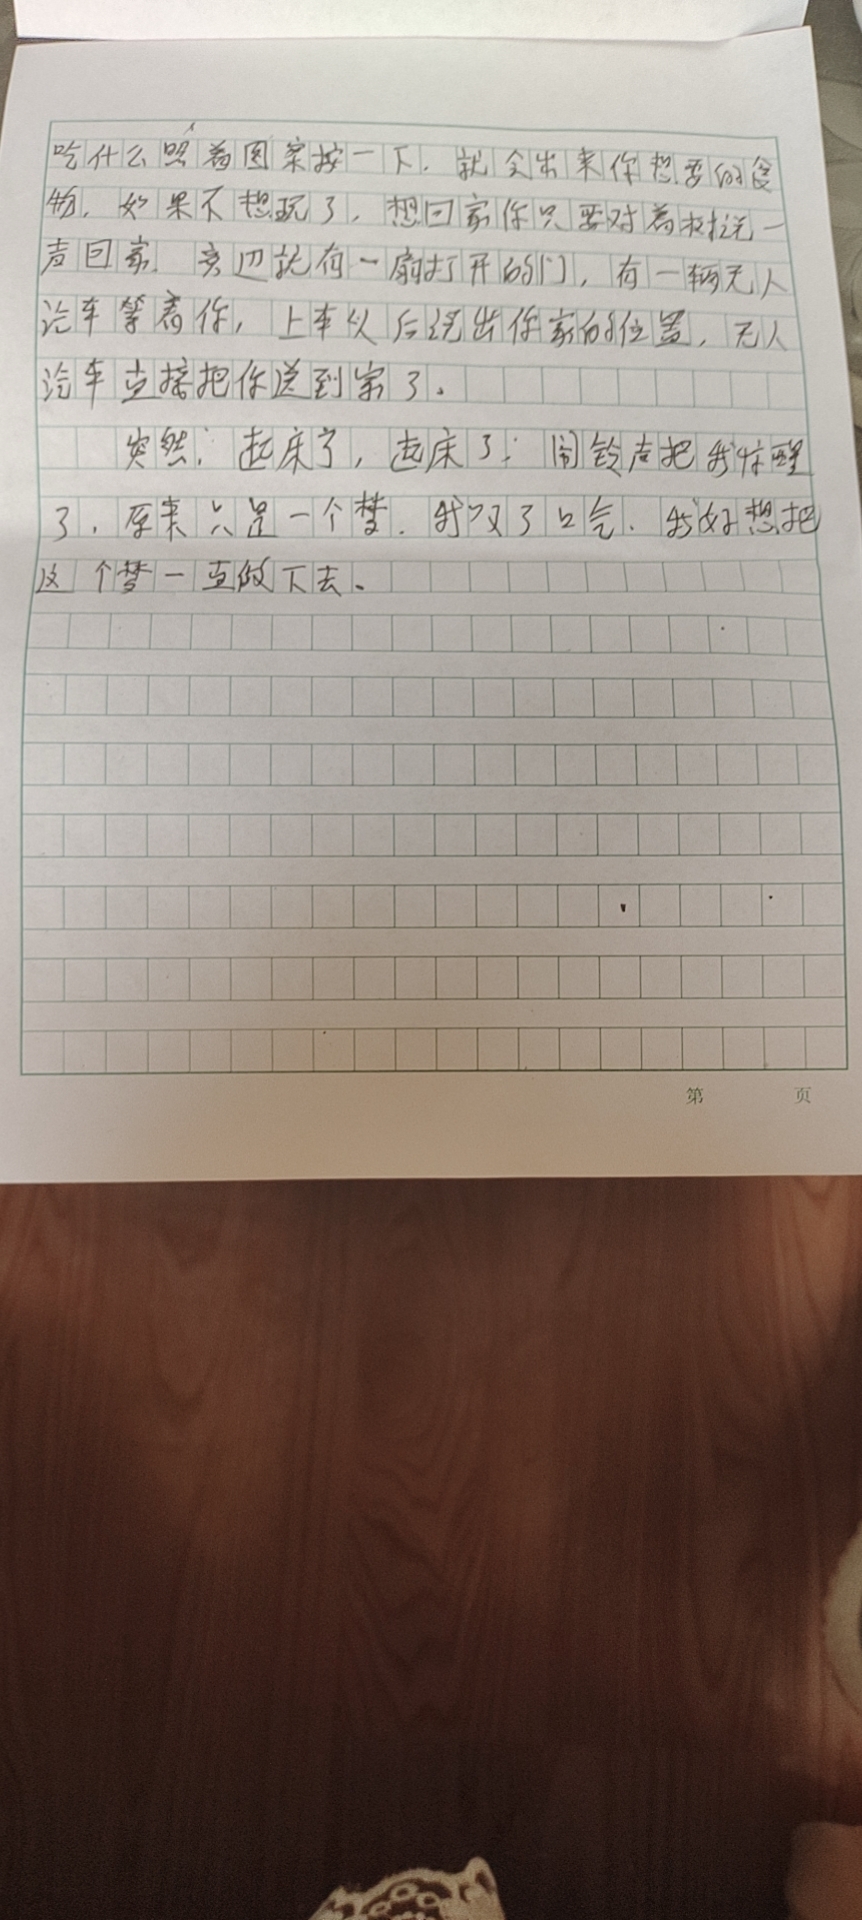 吃什么照着图案按一下.就会出来你想要的食
物.如果不想玩了,想回家你只要对着衣拉说一
声回家.旁边就有一扇打开的门,有一辆无人
汽车等着你,上车以后说出你家的位置,无人
汽车直接把你送到家了。
突然:起床了,起床了:闹铃声把我惊醒
了.原来只是一个梦.我叹了口气.我好想把
这个梦一直做下去、
第 页